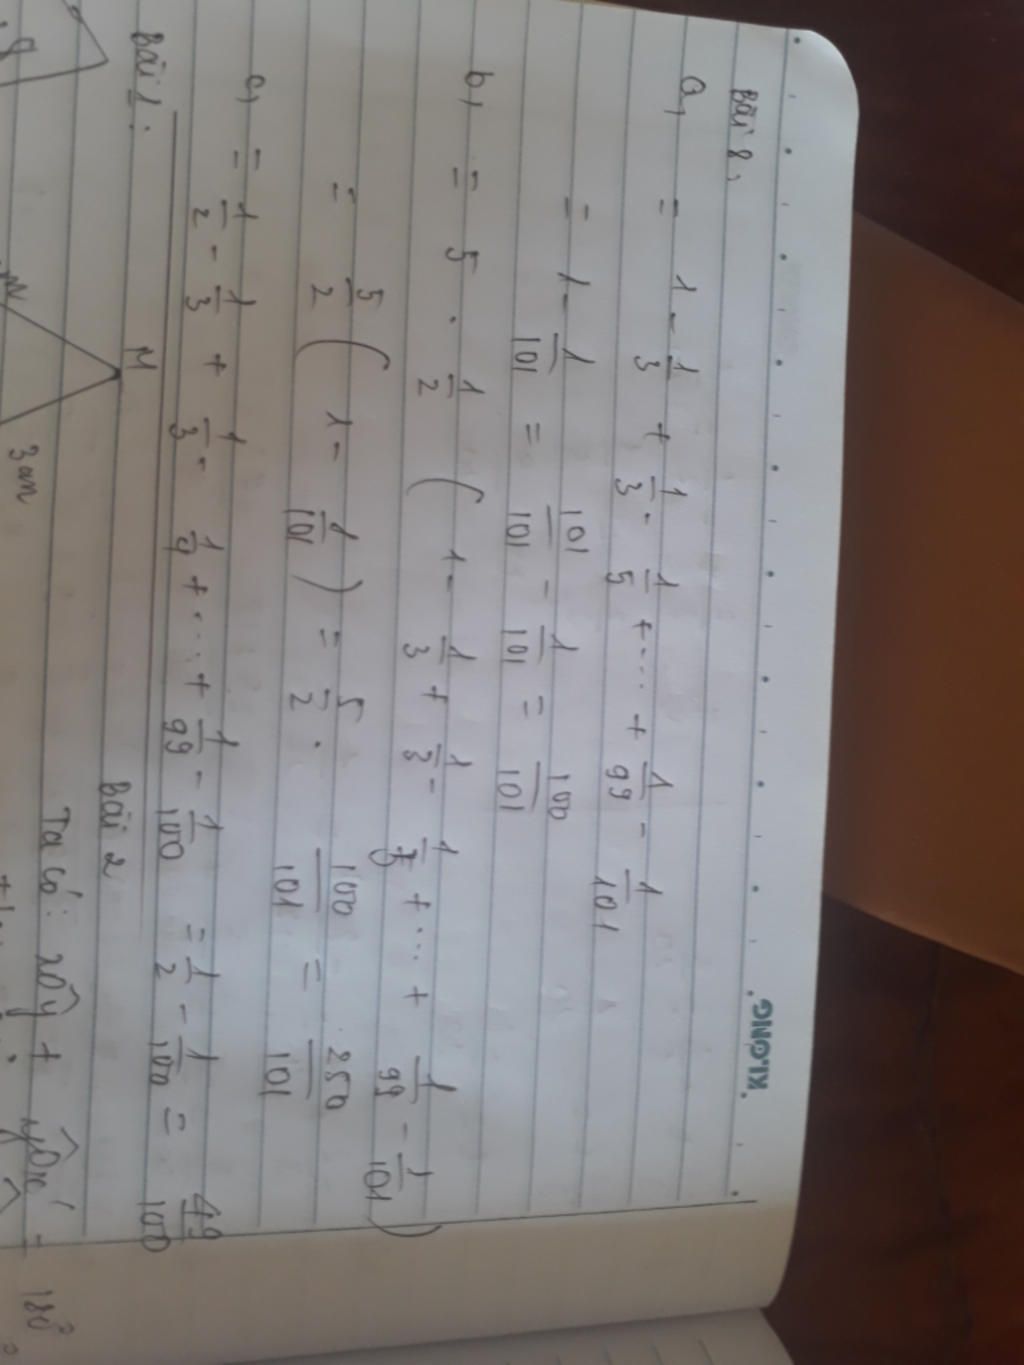 KLONG
Bài 8,
a, = 1 - 1/3 + 1/3 - 1/5 + ... + 1/99 - 1/101
= 1 - 1/101 = 101/101 - 1/101 = 100/101
b, = 5 . 1/2 ( 1 - 1/3 + 1/3 - 1/5 + ... + 1/99 - 1/101 )
= 5/2 ( 1 - 1/101 ) = 5/2 . 100/101 = 250/101
c, = 1/2 - 1/3 + 1/3 - 1/4 + ... + 1/99 - 1/100 = 1/2 - 1/100 = 49/100
Bài 1:
M
Bài 2
Ta có: xOy +
180°
3cm